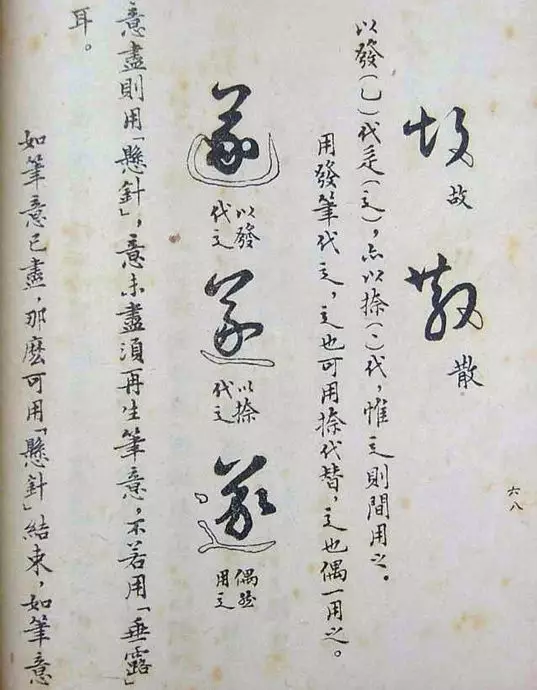 故 故 散 散
以發(乚)代辵(辶),亦以捺(㇏)代,惟辶則間用之。
用發筆代辶,辶也可用捺代替,辶也偶一用之。
遂 以發代辶 遂 以捺代辶 遂 偶然用辶
意盡則用「懸針」,意未盡須再生筆意,不若用「垂露」
耳。
如筆意已盡,那麽可用「懸針」結束,如筆意
六八